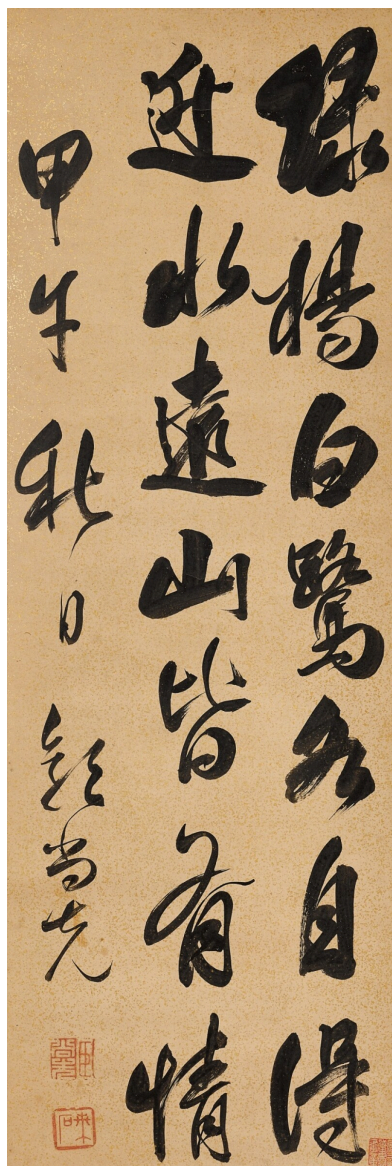 綠楊白鷺各自得
近水遠山皆有情
甲午秋日
尚先